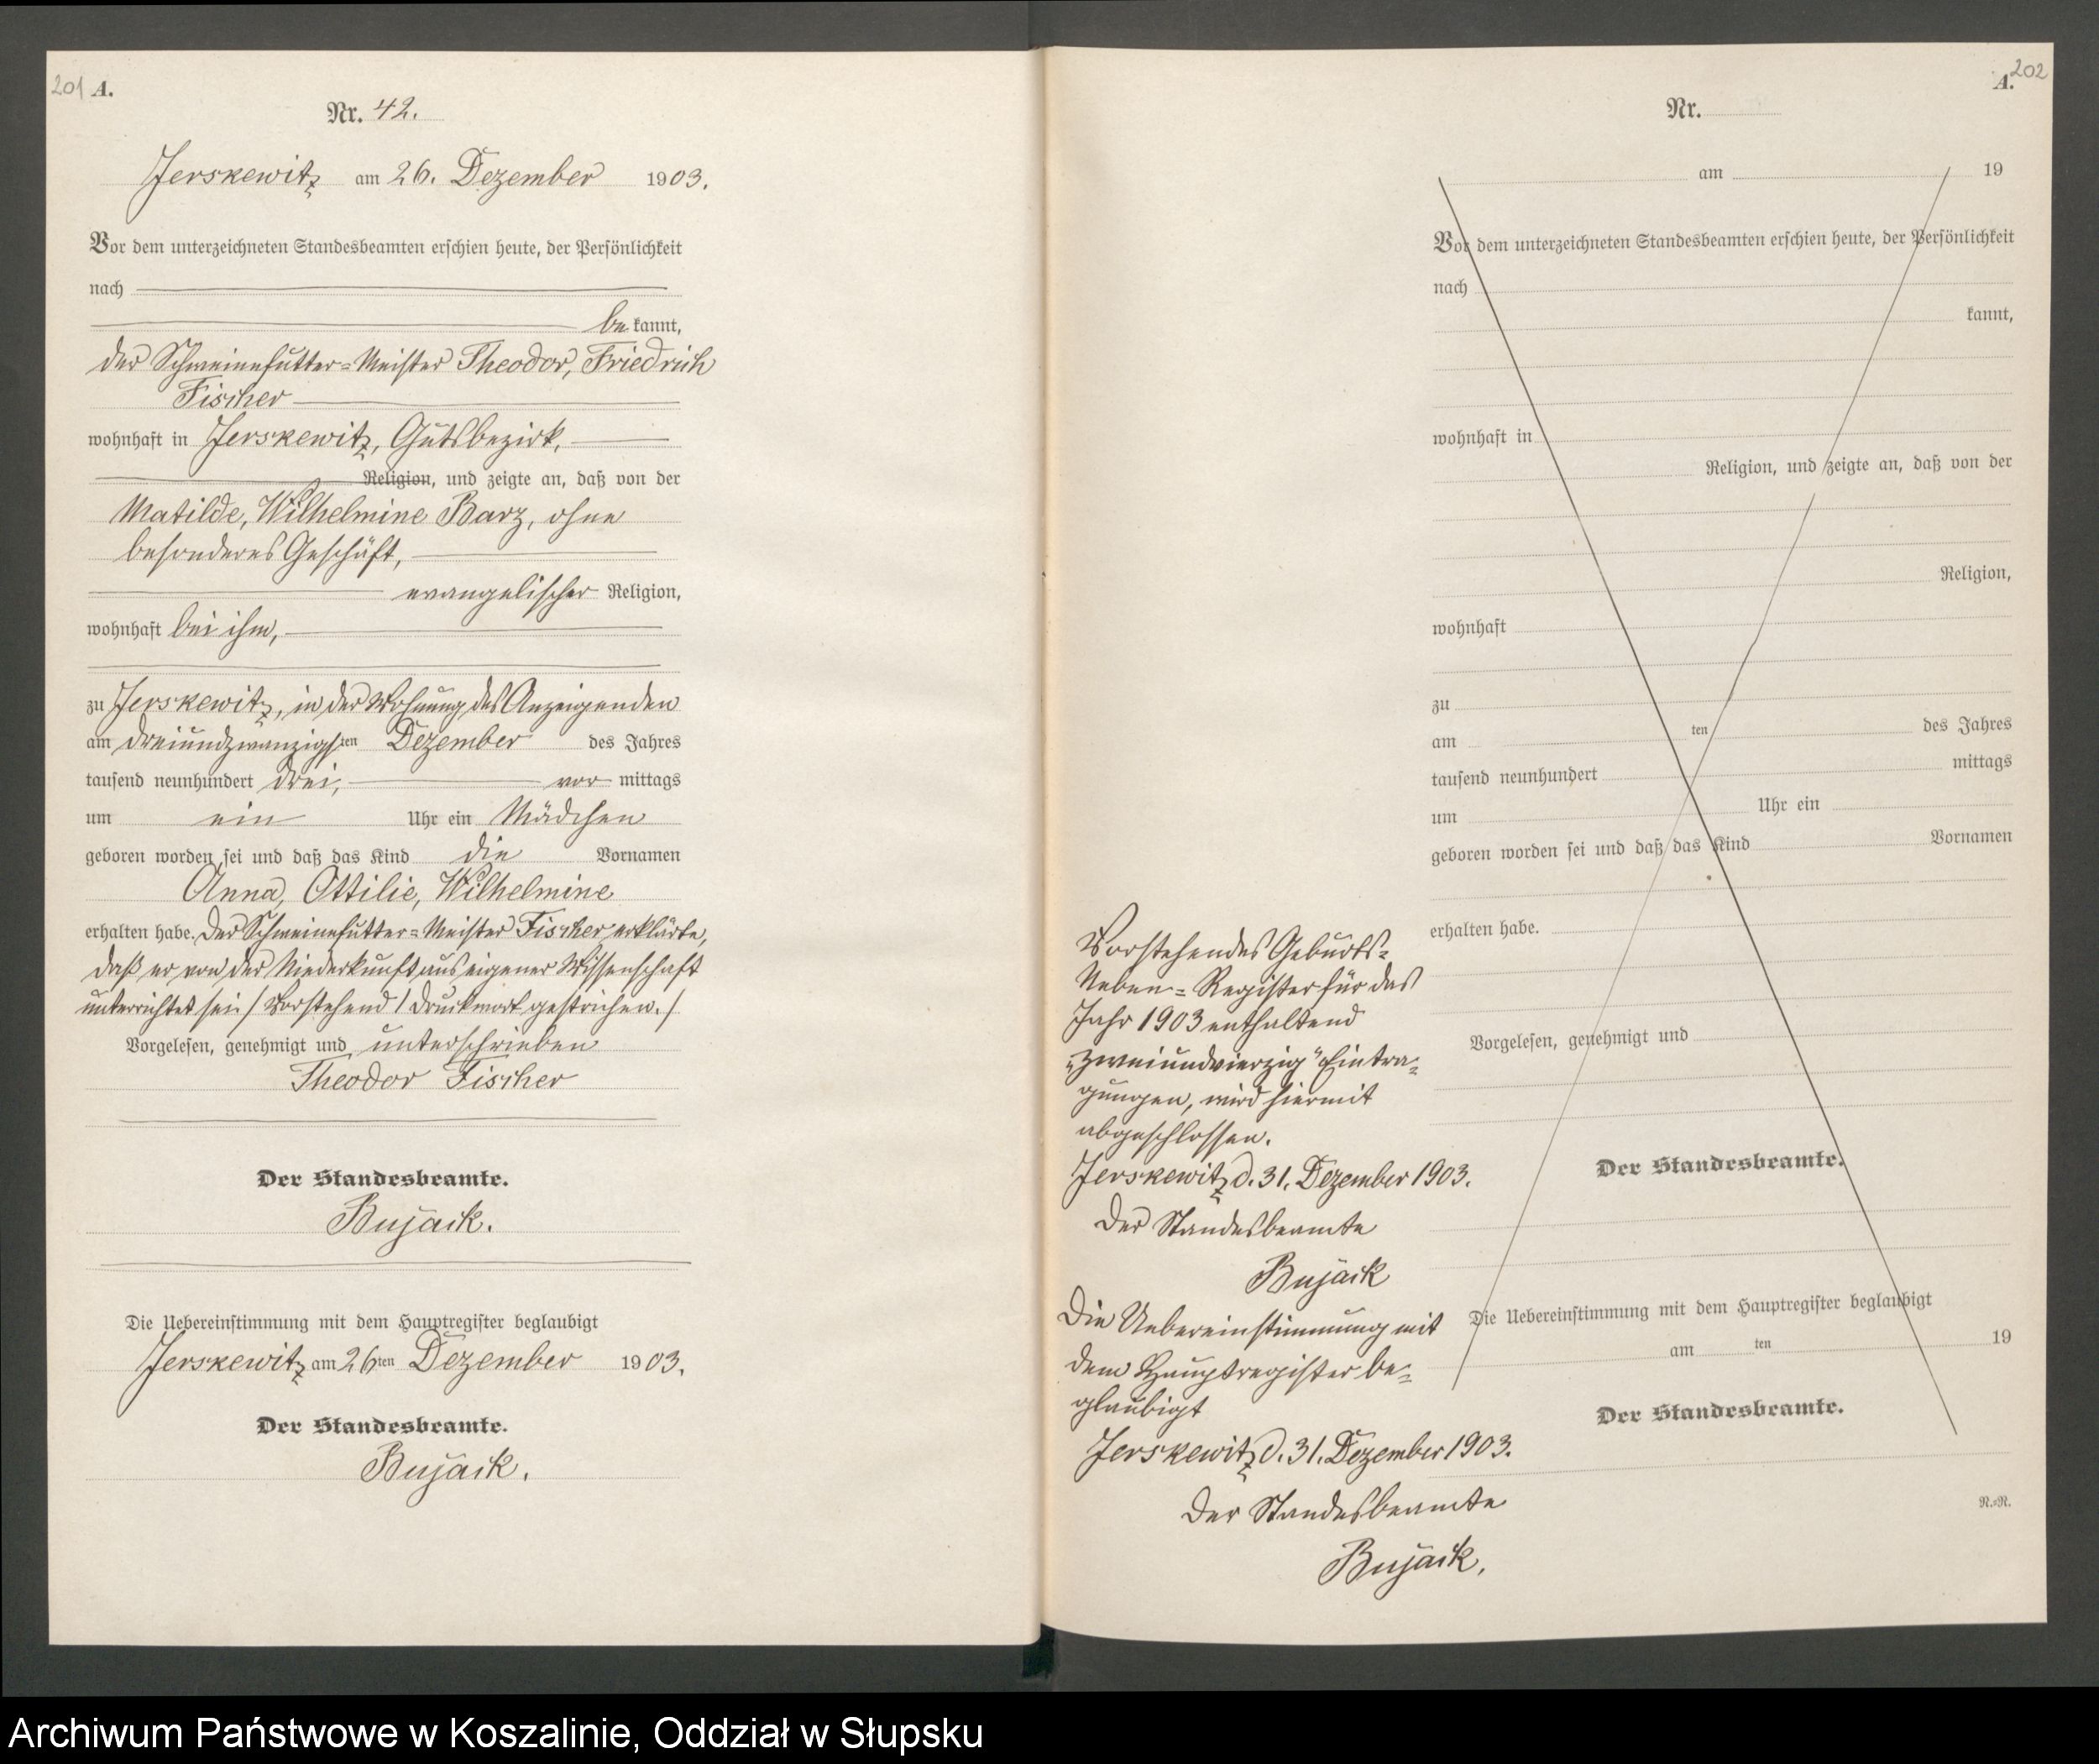 201 A.
Nr. 42.
Jerskewitz am 26. Dezember 1903.
Vor dem unterzeichneten Standesbeamten erschien heute, der Persönlichkeit
nach
be kannt,
der Schweinefutter=Meister Theodor, Friedrich
Fischer
wohnhaft in Jerskewitz, Gutsbezirk,
Religion, und zeigte an, daß von der
Matilde, Wilhelmine Barz, ohne
besonderes Geschäft,
evangelischer Religion,
wohnhaft bei ihm,
zu Jerskewitz, in der Wohnung des Anzeigenden
am dreiundzwanzigsten Dezember des Jahres
tausend neunhundert drei, vor mittags
um ein Uhr ein Mädchen
geboren worden sei und daß das Kind die Vornamen
Anna, Ottilie, Wilhelmine
erhalten habe. Der Schweinefutter=Meister Fischer erklärte,
daß er von der Niederkunft aus eigener Wissenschaft
unterrichtet sei. / Vorstehend 1 Druckwort gestrichen. /
Vorgelesen, genehmigt und unterschrieben
Theodor Fischer
Der Standesbeamte.
Bujack.
Die Uebereinstimmung mit dem Hauptregister beglaubigt
Jerskewitz am 26ten Dezember 1903.
Der Standesbeamte.
Bujack.
A. 202
Nr.
am 19
Vor dem unterzeichneten Standesbeamten erschien heute, der Persönlichkeit
nach
kannt,
wohnhaft in
Religion, und zeigte an, daß von der
Religion,
wohnhaft
zu
am ten des Jahres
tausend neunhundert mittags
um Uhr ein
geboren worden sei und daß das Kind Vornamen
erhalten habe.
Vorgelesen, genehmigt und
Der Standesbeamte.
Die Uebereinstimmung mit dem Hauptregister beglaubigt
am ten 19
Der Standesbeamte.
N.=R.
Vorstehendes Geburts=
Neben=Register für das
Jahr 1903 enthaltend
„zweiundvierzig" Eintra=
gungen, wird hiermit
abgeschlossen.
Jerskewitz d. 31. Dezember 1903.
Der Standesbeamte
Bujack
Die Uebereinstimmung mit
dem Hauptregister be=
glaubigt
Jerskewitz d. 31. Dezember 1903.
Der Standesbeamte
Bujack.
Archiwum Państwowe w Koszalinie, Oddział w Słupsku